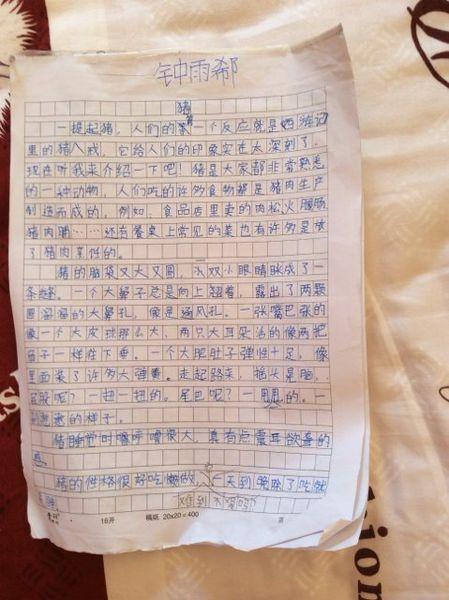 钟雨郗
猪
一提起猪，人们的第一个反应就是西游记
里的猪八戒，它给人们的印象实在太深刻了，
现在听我来介绍一下吧！猪是大家都非常熟悉
的一种动物，人们吃的许多食物都是猪肉生产
制造而成的，例如，食品店里卖的肉松火腿肠
猪肉脯……还有餐桌上常见的菜也有许多是放
了猪肉烹饪的。
猪的脑袋又大又圆，双小眼睛眯成了一
条缝。一个大鼻子总是向上翘着，露出了两颗
圆溜溜的大鼻孔，像是通风孔。一张嘴巴张的
像一个大皮球那么大，两只大耳朵活的像两把
扇子一样往下垂。一个大肥肚子弹性十足，像
里面装了许多大弹簧。走起路来，摇头晃脑，
屁股呢？一扭一扭的。尾巴呢？一甩甩的。一
的样子。
猪睡觉时噜呼噜很大，真有点震耳欲聋的
感
猪的性格很好吃懒做，一天到晚除了吃就
是睡
难到不
16开 稿纸 20×20=400 页
tion